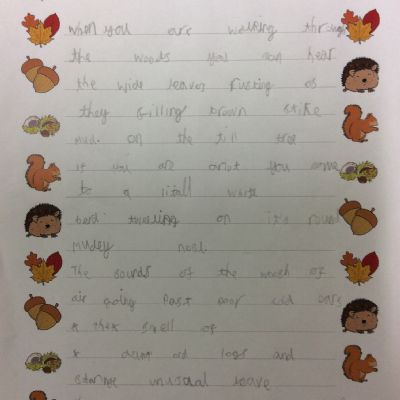 When you are walking through
the woods you can hear
the wide leaves rusting as
they falling brown stike
mud. on the till tree
if you are you
to a litall white
berd tweeting on it's round
mudey nest.
The sounds of the woosh of
air going past your cold ears
* the smell of
* damp old logs and
stange unusual leave